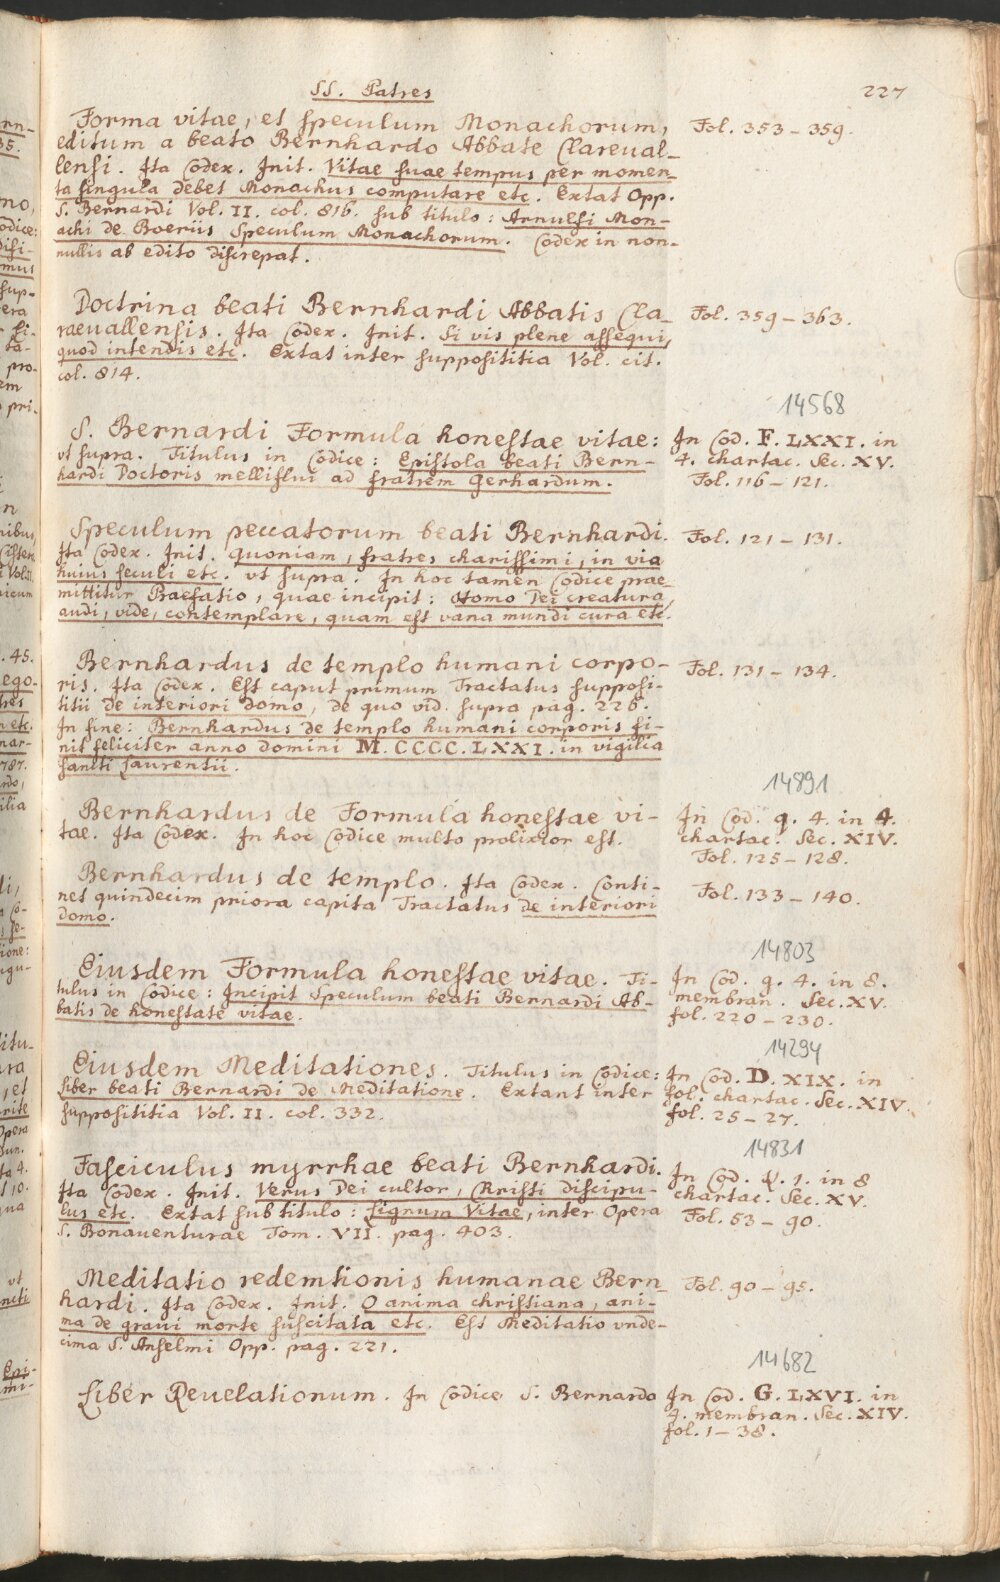 SS. Patres
227
Forma vitae, et speculum Monachorum,
editum a beato Bernhardo Abbate Clareual-
lensi. Ita Codex. Init. Vitae suae tempus per momen-
ta singula debet Monachus computare etc. Extat Opp.
S. Bernardi Vol. II. col. 816. sub titulo: Arnulfi Mon-
achi de Boeriis Speculum Monachorum. Codex in non-
nullis ab edito discrepat.
Fol. 353 – 359.
Doctrina beati Bernhardi Abbatis Cla-
raevallensis. Ita Codex. Init. Si vis plene assequi,
quod intendis etc. Extat inter supposititia Vol. cit.
col. 814.
Fol. 359 – 363.
14568
S. Bernardi Formula honestae vitae:
vt supra. Titulus in Codice: Epistola beati Bern-
hardi Doctoris melliflui ad fratrem Gerhardum.
In Cod. F. LXXI. in
4. chartac. Sec. XV.
Fol. 116 – 121.
Speculum peccatorum beati Bernhardi.
Ita Codex. Init. Quoniam, fratres charissimi, in via
huius seculi etc. vt supra. In hoc tamen Codice prae
mittitur Praefatio, quae incipit: Homo Dei creatura,
audi, vide, contemplare, quam est vana mundi cura etc.
Fol. 121 – 131.
Bernhardus de templo humani corpo-
ris. Ita Codex. Est caput primum Tractatus supposi-
titii de interiori domo, de quo vid. supra pag. 226.
In fine: Bernhardus de templo humani corporis fi-
nit feliciter anno domini M.CCCC.LXXI. in vigilia
sancti Laurentii.
Fol. 131 – 134.
14891
Bernhardus de Formula honestae vi-
tae. Ita Codex. In hoc Codice multo prolixior est.
In Cod. q. 4. in 4.
chartac. Sec. XIV.
Fol. 125 – 128.
Bernhardus de templo. Ita Codex. Conti-
net quindecim priora capita Tractatus de interiori
domo.
Fol. 133 – 140.
14803
Eiusdem Formula honestae vitae. Ti-
tulus in Codice: Incipit Speculum beati Bernardi Ab-
batis de honestate vitae.
In Cod. g. 4. in 8.
membran. Sec. XV.
fol. 220 – 230.
14294
Eiusdem Meditationes. Titulus in Codice:
Liber beati Bernardi de Meditatione. Extant inter
supposititia Vol. II. col. 332.
In Cod. D. XIX. in
fol. chartac. Sec. XIV.
fol. 25 – 27.
14831
Fasciculus myrrhae beati Bernhardi.
Ita Codex. Init. Verus Dei cultor, Christi discipu-
lus etc. Extat sub titulo: Lignum Vitae, inter Opera
S. Bonauenturae Tom. VII. pag. 403.
In Cod. 1. in 8
chartac. Sec. XV.
Fol. 53 – 90.
Meditatio redemtionis humanae Bern-
hardi. Ita Codex. Init. O anima christiana, ani-
ma de graui morte suscitata etc. Est Meditatio vnde-
cima S. Anselmi Opp. pag. 221.
Fol. 90 – 95.
14682
Liber Reuelationum. In Codice S. Bernardo
In Cod. G. LXVI. in
4. membran. Sec. XIV.
fol. 1 – 38.